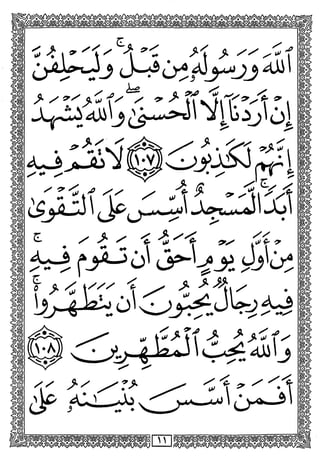 ٱللَّهَ وَرَسُولَهُۥ مِن قَبۡلُۚ وَلَيَحۡلِفُنَّ
إِنۡ أَرَدۡنَآ إِلَّا ٱلۡحُسۡنَىٰۖ وَٱللَّهُ يَشۡهَدُ
إِنَّهُمۡ لَكَٰذِبُونَ ١٠٧ لَا تَقُمۡ فِيهِ
أَبَدٗاۚ لَّمَسۡجِدٌ أُسِّسَ عَلَى ٱلتَّقۡوَىٰ
مِنۡ أَوَّلِ يَوۡمٍ أَحَقُّ أَن تَقُومَ فِيهِۚ
فِيهِ رِجَالٞ يُحِبُّونَ أَن يَتَطَهَّرُواْۚ
وَٱللَّهُ يُحِبُّ ٱلۡمُطَّهِّرِينَ ١٠٨
أَفَمَنۡ أَسَّسَ بُنۡيَٰنَهُۥ عَلَىٰ
١١